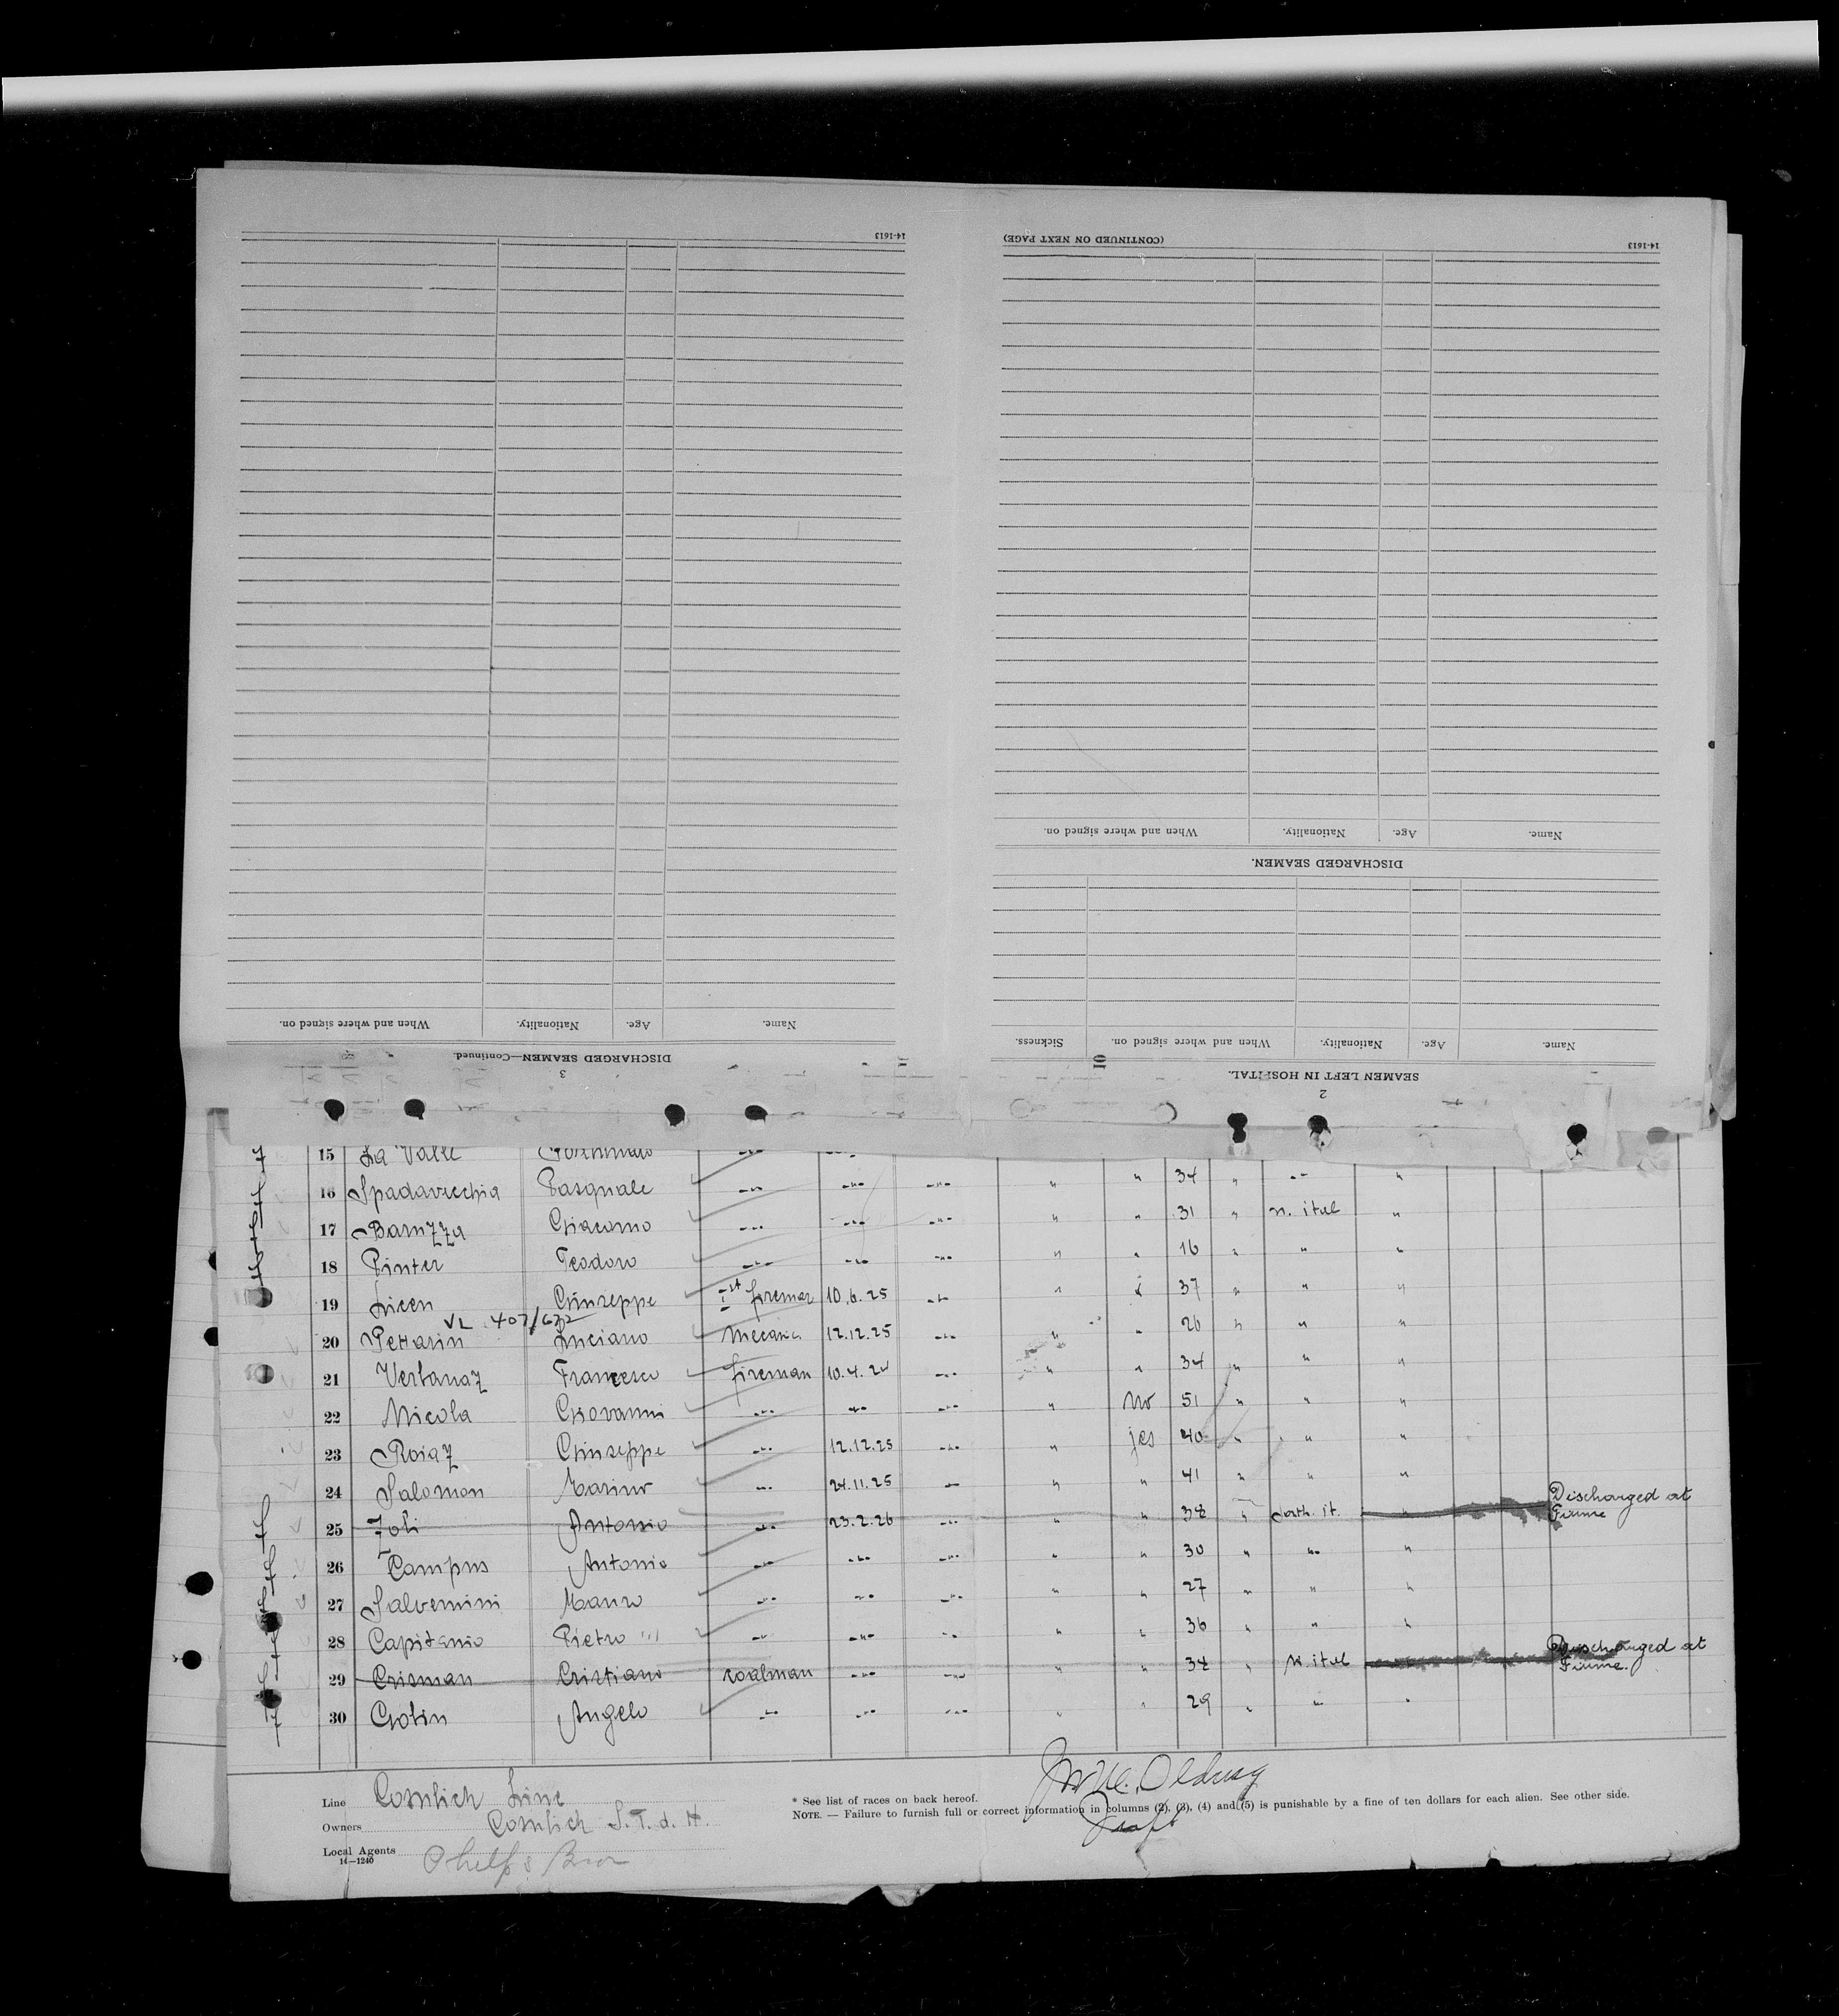 14-1613
(CONTINUED ON NEXT PAGE)
14-1613
When and where signed on. Nationality. Age. Name.
DISCHARGED SEAMEN.
When and where signed on. Nationality. Age. Name.
Sickness. When and where signed on. Nationality. Age. Name.
DISCHARGED SEAMEN—Continued.
3
SEAMEN LEFT IN HOSPITAL.
2
15 La Valle
16 Spadavecchia Pasquale -"- -"- -"- " " 34 " -"- "
17 Giacomo -"- -"- -"- " " 31 " n. ital "
18 Pinter Teodoro -"- -"- -"- " " 16 " " "
19 Giuseppe 1st fireman 10.6.25 -"- " " 37 " " "
VL 407/672
20 Petrarin Luciano 12.12.25 -"- " " 26 " " "
21 Verbanaz Francesco fireman 10.4.24 -"- " " 34 " " "
22 Nicola Giovanni -"- -"- -"- " no 51 " " "
23 Roiaz Giuseppe -"- 12.12.25 -"- " jes 40 " " "
24 Salomon Marino -"- 24.11.25 -"- " " 41 " " "
25 Antonio -"- 23.2.26 -"- " " 38 " south. it. " Discharged at
Fiume
26 Campus Antonio -"- -"- -"- " " 30 " " "
27 Salvemini Mauro -"- -"- -"- " " 27 " " "
28 Capitanio Pietro -"- -"- -"- " " 36 " " "
29 Crisman Cristiano coalman -"- -"- " " " N. ital Discharged at
Fiume.
30 Gobin Angelo -"- -"- -"- " " 29 " " "
Line Cosulich Line
Owners Cosulich S. T. d. N.
Local Agents Phelps Bros
14—1240
* See list of races on back hereof.
NOTE. — Failure to furnish full or correct information in columns (2), (3), (4) and (5) is punishable by a fine of ten dollars for each alien. See other side.